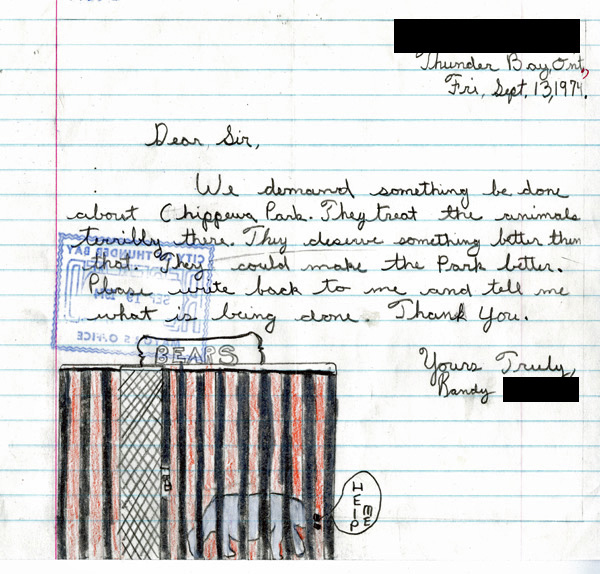 Thunder Bay, Ont,
Fri, Sept. 13, 1974.
Dear Sir,
We demand something be done
about Chippewa Park. They treat the animals
terribly there. They deserve something better then
that. They could make the Park better.
Please write back to me and tell me
what is being done. Thank You.
CITY THUNDER BAY
SEP
OFFICE
Yours Truly,
Randy
BEARS
HELP
ME